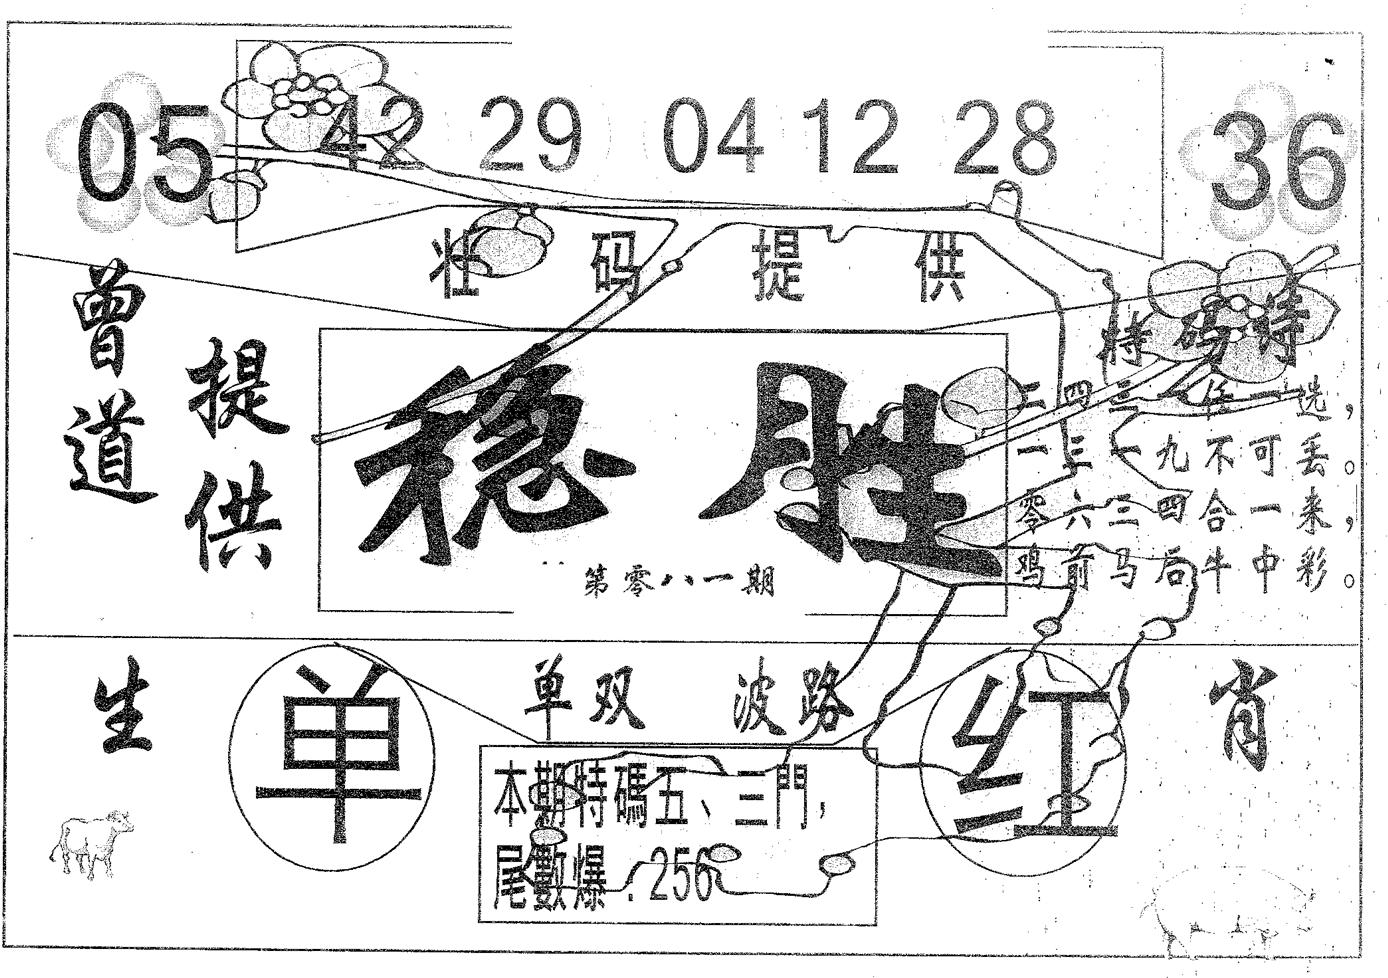 05 42 29 04 12 28 36
壮码提供
曾道
提供
稳胜
第零八一期
特码诗
二四三一任一选，
一三一九不可丢。
零六三四合一来，
鸡前马后牛中彩。
生
单
单双 波路
红
肖
本期特碼五、三門，
尾數爆：256